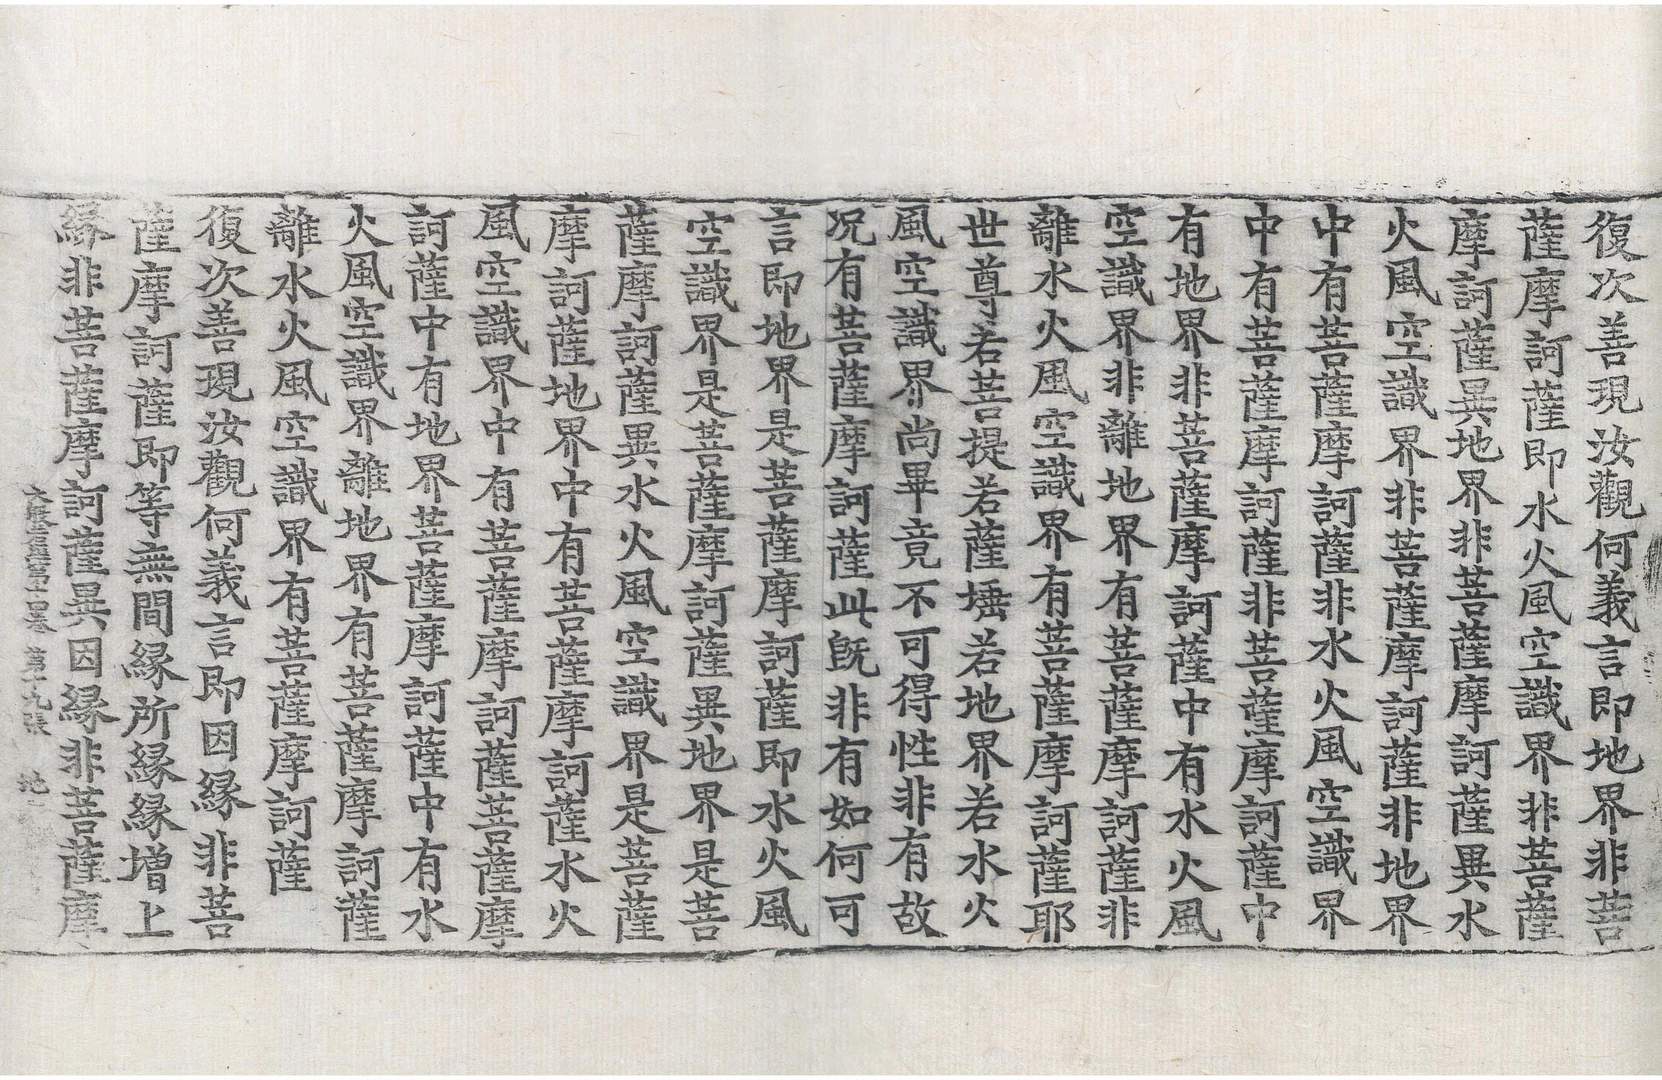 復次善現汝觀何義言即地界非菩
薩摩訶薩即水火風空識界非菩薩
摩訶薩異地界非菩薩摩訶薩異水
火風空識界非菩薩摩訶薩非地界
中有菩薩摩訶薩非水火風空識界
中有菩薩摩訶薩非菩薩摩訶薩中
有地界非菩薩摩訶薩中有水火風
空識界非離地界有菩薩摩訶薩非
離水火風空識界有菩薩摩訶薩耶
世尊若菩提若薩埵若地界若水火
風空識界尚畢竟不可得性非有故
况有菩薩摩訶薩此旣非有如何可
言即地界是菩薩摩訶薩即水火風
空識界是菩薩摩訶薩異地界是菩
薩摩訶薩異水火風空識界是菩薩
摩訶薩地界中有菩薩摩訶薩水火
風空識界中有菩薩摩訶薩菩薩摩
訶薩中有地界菩薩摩訶薩中有水
火風空識界離地界有菩薩摩訶薩
離水火風空識界有菩薩摩訶薩
復次善現汝觀何義言即因緣非菩
薩摩訶薩即等無間緣所緣緣增上
緣非菩薩摩訶薩異因緣非菩薩摩
第十九張 地